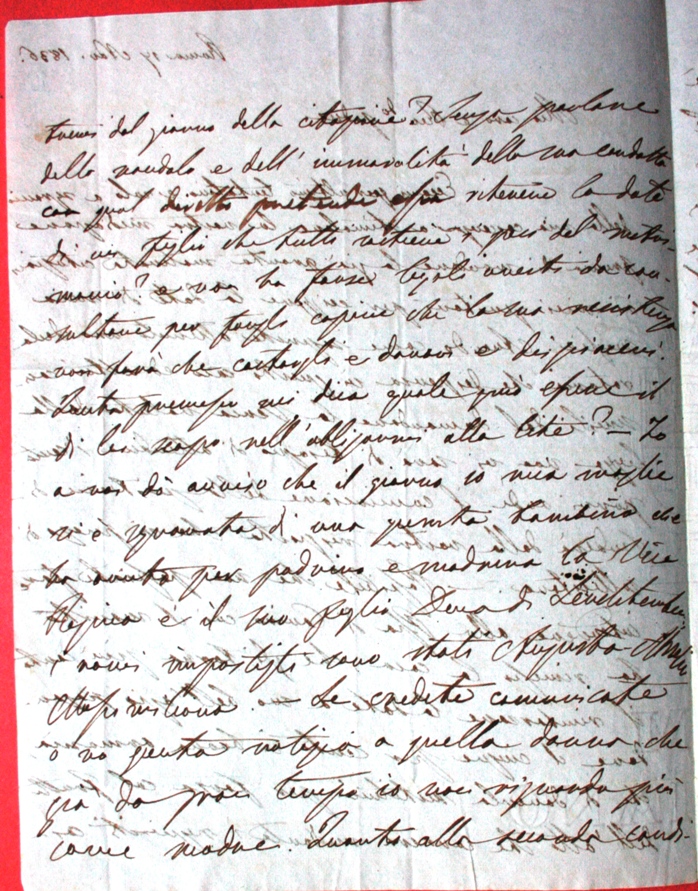 Roma 17 Nov. 1836.
turni dal giorno della citazione? Senza parlare
dello scandalo e dell'immoralità della sua condotta
con qual diritto pretende essa ritenere la dote
di un figlio che tutti ritiene i pesi del matri-
monio? e non ha forse legali onesti da con-
sultare per fargli capire che la sua resistenza
non farà che costargli e danari e dispiaceri.
Tanto premesso mi dica quale può essere il
di lei scopo nell'obbligarmi alla lite? - Io
a voi dò avviso che il giorno 10 mia moglie
si è sgravata di una quinta bambina che
ha avuta per padrino e madrina la Vice
Regina e il suo figlio Duca di Leuchtemberg
i nomi impostigli sono stati Augusta
Massimiliana. - Se credete comunicate
questa notizia a quella donna che
già da gran tempo io non riguardo più
come madre. Quanto alla seconda condi-